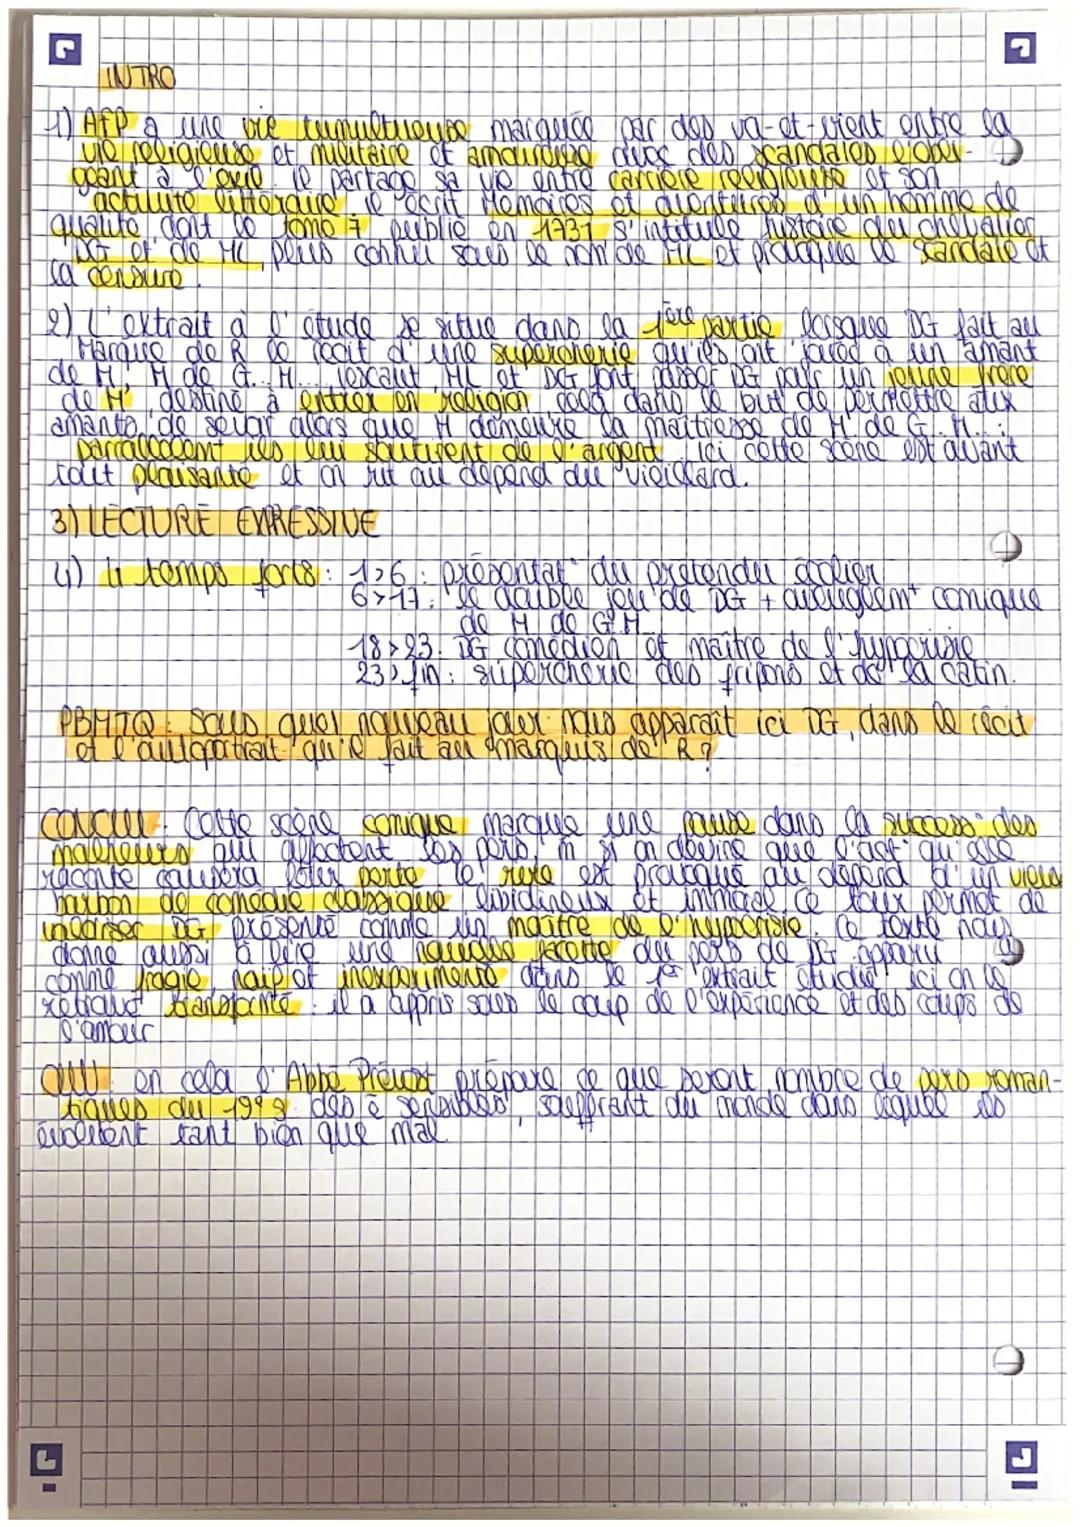 INTRO
1) AfP a une vie tumultueuse marquée par des va-et-vient entre la
vie religieuse et militaire et amoureuse avec des scandales l'obli-
geant à l'exil. Il partage sa vie entre carrière religieuse et son
activité littéraire, il écrit Mémoires et aventures d'un homme de
qualité dont le tome 7 publié en 1731 s'intitule histoire du chevalier
DG et de ML, plus connu sous le nom de ML et provoque le scandale et
la censure.
2) L'extrait à l'étude se situe dans la 1ère partie lorsque DG fait au
Marquis de R le récit d'une supercherie qu'ils ont jouée à un amant
de M, M de G... M... Lescaut, ML et DG font passer DG pour un jeune frère
de M, destiné à entrer en religion cela dans le but de permettre aux
amants de se voir alors que M demeure la maîtresse de M de G... M...
parrallèlement ils lui soutirent de l'argent. Ici cette scène est avant
tout plaisante et on rit au dépend du vieillard.
3) LECTURE EXPRESSIVE
4) 4 temps forts : 1>6 : présentat° du prétendu écolier
6>17 : le double jeu de DG + aveuglemt comique
de M de G.M
18>23 : DG comédien et maître de l'hypocrisie
23>fin : supercherie des fripons et de la catin.
PBMTQ : Sous quel nouveau jour nous apparaît ici DG, dans le récit
et l'autoportrait qu'il fait au marquis de R ?
CONCLU : Cette scène comique marque une pause dans la success° des
malheurs qui affectent les pers, m si on devine que l'act° qu'elle
raconte causera leur perte le rire est provoqué au dépend d'un vieux
barbon de comédie classique libidineux et immoral. Ce tour permet de
DG présenté comme un maître de l'hypocrisie. Ce texte nous
donne aussi à lire une nouvelle facette du pers de DG apparu
comme fragile, naïf et inexpérimenté dans le 1er extrait étudié ici on le
retrouve transformé : il a appris sous le coup de l'expérience et des coups de
l'amour
OUV : en cela l'Abbé Prévost prépare ce que seront nombre de pers roman-
tiques du 19e s. des ê sensibles, souffrant du monde dans lequel ils
évoluent tant bien que mal.